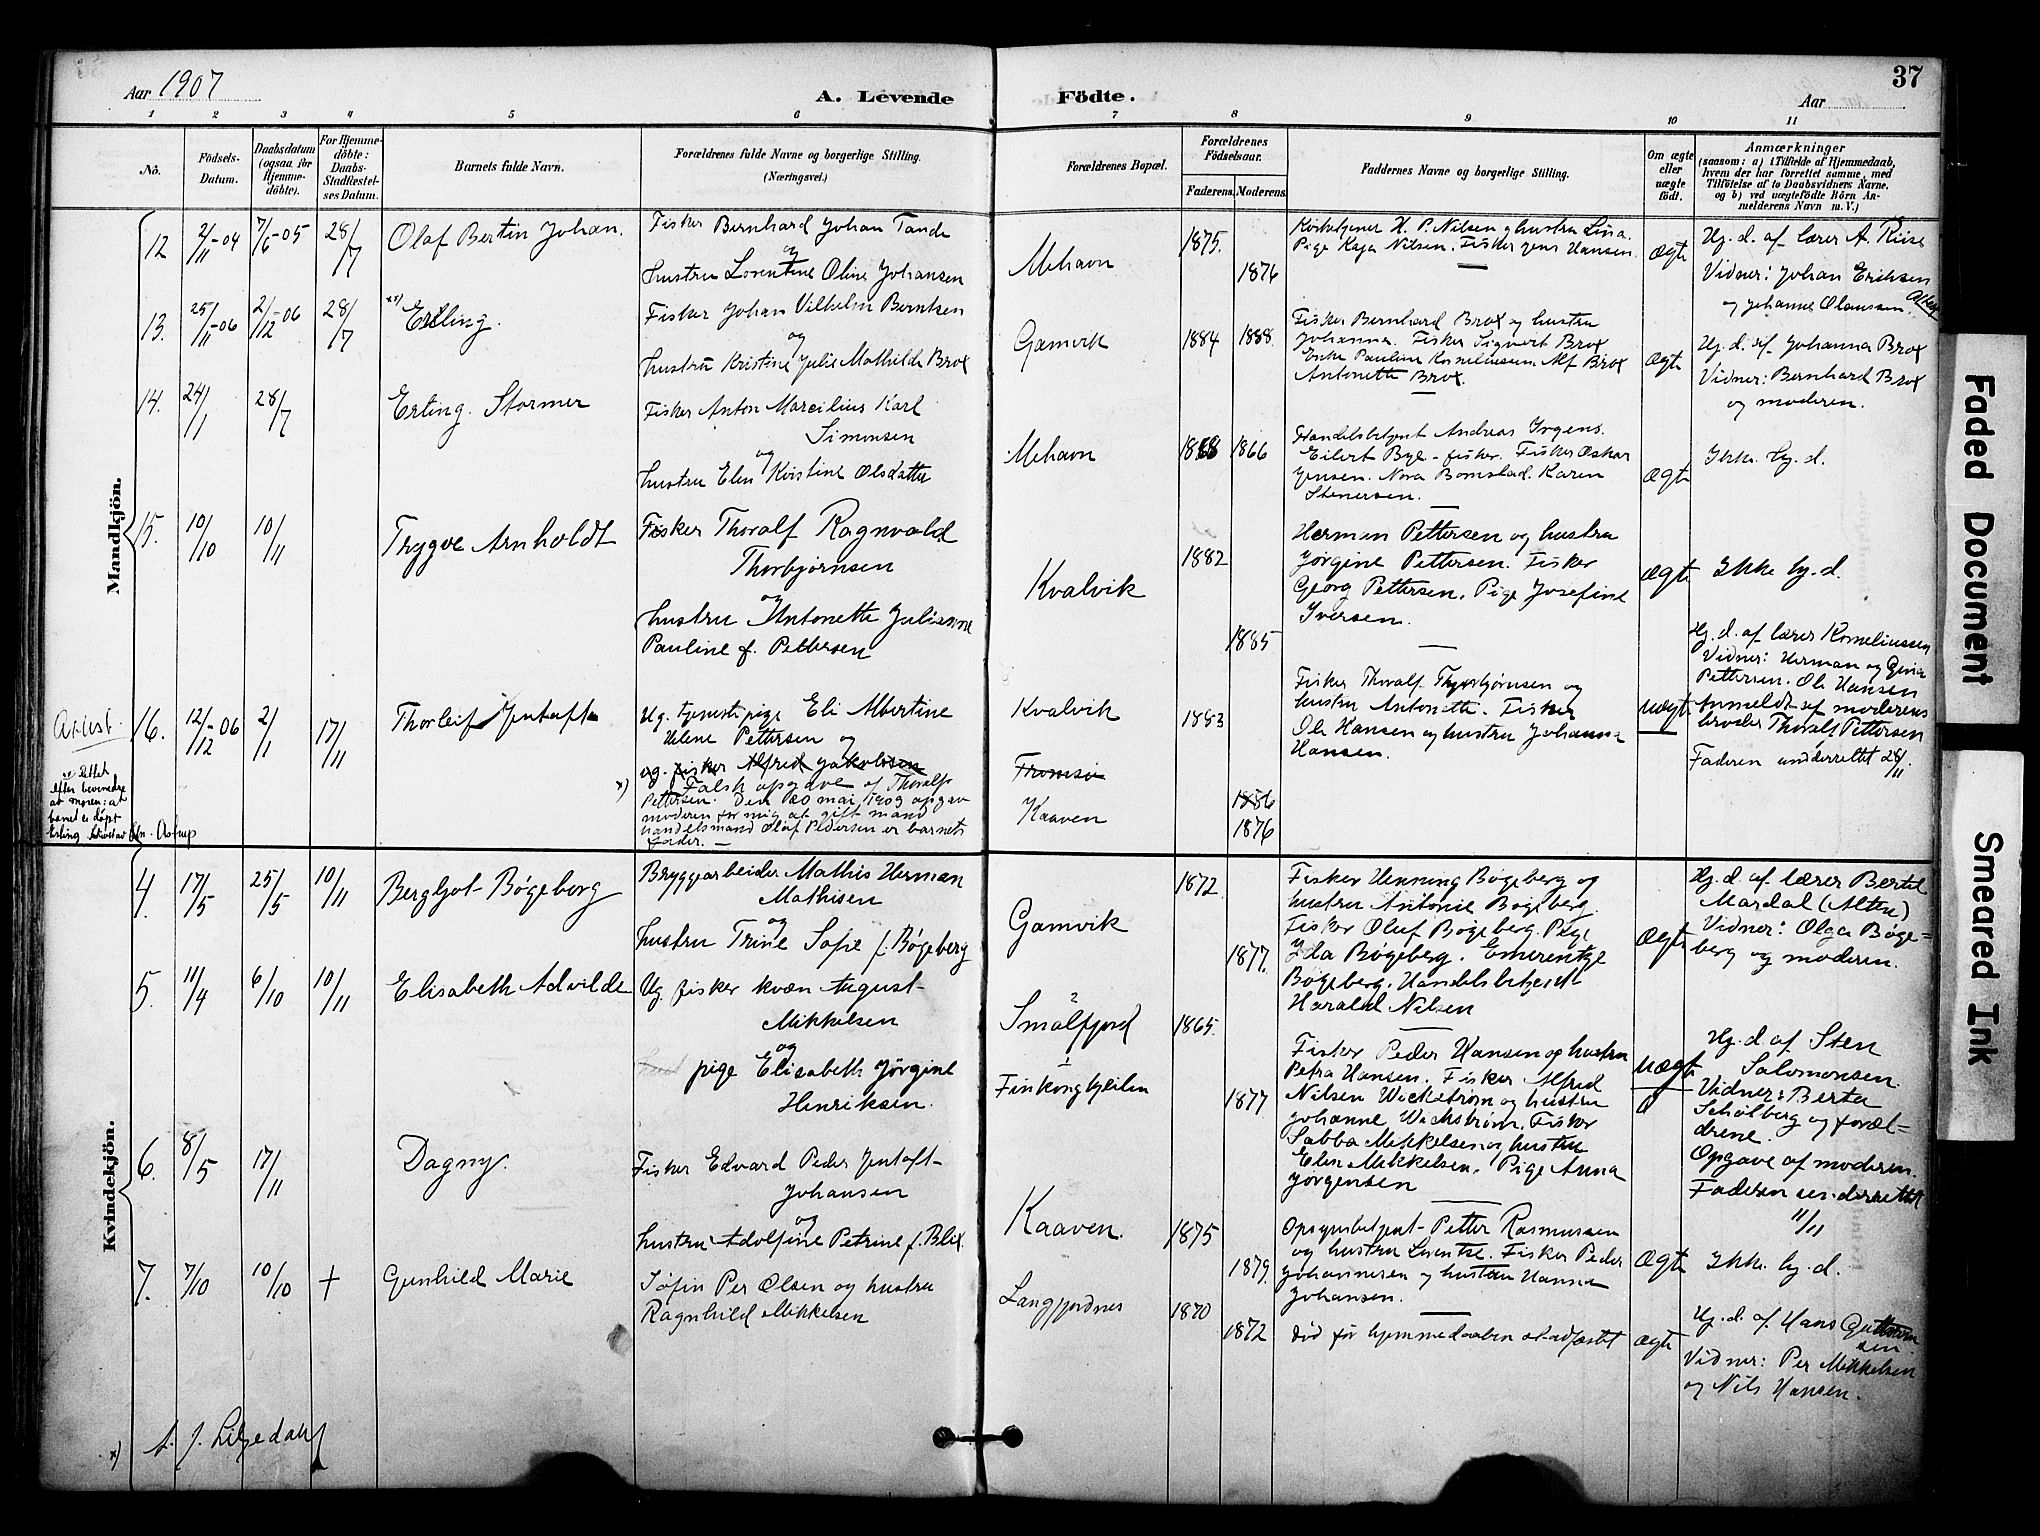 Aar 1907
A. Levende
Födte.
Aar
37
1 2 3 4 5 6 7 8 9 10 11
No.
Födsels-
Datum.
Daabsdatum
(ogsaa for
Hjemme-
döbte).
For Hjemme-
döbte:
Daabs-
Stadfæstel-
ses Datum.
Barnets fulde Navn.
Forældrenes fulde Navne og borgerlige Stilling.
(Næringsvei.)
Forældrenes Bopæl.
Forældrenes
Födselsaar.
Faderens. Moderens.
Faddernes Navne og borgerlige Stilling.
Om ægte
eller
uægte
födt.
Anmærkninger
(saasom: a) i Tilfælde af Hjemmedaab,
hvem der har forrettet samme, med
Tilföielse af to Daabsvidners Navne,
og b) ved uægtefödte Börn An-
melderens Navn m. V.)
Mandkjön.
12 2/11-04 7/6-05 28/7 Olaf Bertin Johan.
Fisker Bernhard Johan Tande
og
hustru Lorentine Oline Johansen
Mehavn
1875.
1876
Kirketjener H. P. Nilsen og hustru Lina.
Pige Kaja Nilsen. Fisker Jens Hansen.
ægte
Hj. d. af lærer A. Riise
Vidner: Johan Eriksen
og Johanne Olaussen.
13. 25/11-06 2/12-06 28/7 Erling.
Fisker Johan Vilhelm Berntsen
og
hustru Kristine Julie Mathilde Brox
Gamvik
1884 1888
Fisker Bernhard Brox og hustru
Johanna. Fisker Sigvart Brox
Enke Pauline Korneliussen Alf Brox
Antonette Brox.
ægte
Hj. d. af Johanna Brox
Vidner: Bernhard Brox
og moderen.
14. 24/1 28/7 Erling. Stormer
Fisker Anton Marcilius Karl
Simonsen
og
hustru Elen Kristine Olsdatter
Mehavn
1868 1866
Handelsbetjent Andreas Irgens.
Eilert Bye - fisker. Fisker Oskar
Jensen. Nora Bomstad. Karen
Stenersen.
ægte
Ikke hj. d.
15. 10/10 10/11 Trygve Arnholdt
Fisker Thoralf Ragnvald
Thorbjørnsen
og
hustru Antonette Julianne
Pauline f. Pettersen
Kvalvik
1882
1885
Herman Pettersen og hustru
Jørgine Pettersen. Fisker
Georg Pettersen. Pige Josefine
Iversen.
ægte
Ikke hj. d.
Attest.
16. 12/12-06 2/1 17/11 Thorleif Jentoft
Ug. tjenestepige Eli Albertine
Helene Pettersen og
ug. fisker Alfred Jakobsen
x) Falsk opgave af Thoralf
Pettersen. Den 20 mai 1909 opgav
moderen for mig at gift mand
handelsmand Olaf Pedersen er barnets
fader. —
Kvalvik
Tromsø
Kaaven
1883
1886
1876
Fisker Thoralf Thorbjørnsen og
hustru Antonette. Fisker
Ole Hansen og hustru Johanna
Hansen.
uægte
Hj. d. af lærer Korneliussen
Vidner: Herman og Gina
Pettersen. Ole Hansen
Anmeldt af moderens
broder Thoralf Pettersen
Faderen underrettet 28/11.
xx) Rettet
efter bevidnelse
at moren: at
barnet er døpt
Erling.
Kvindekjön.
4. 17/5 25/5 10/11 Bergljot Bøgeberg
Bryggearbeider Mathis Herman
Mathisen
og
hustru Trine Sofie f. Bøgeberg
Gamvik
1872.
1877.
Fisker Henning Bøgeberg og
hustru Antonie Bøgeberg.
Fisker Oluf Bøgeberg. Pige
Ida Bøgeberg. Emerentze
Bøgeberg. Handelsbetjent
Harald Nilsen
ægte
Hj. d. af lærer Bertel
Mardal (Alten)
Vidner: Olga Bøge=
berg og moderen.
5. 11/4 6/10 10/11 Elisabeth Advilde
Ug. fisker kvæn August
Mikkelsen
og
pige Elisabeth Jørgine
Henriksen.
Smalfjord
Finkongkjeilen
1865.
1877
Fisker Peder Hansen og hustru
Petra Hansen. Fisker Alfred
Nilsen Wickstrøm og hustru
Johanne Wickstrøm. Fisker
Sabba Mikkelsen og hustru
Elen Mikkelsen. Pige Anna
Jørgensen
uægte
Hj. d. af Sten
Salomonsen.
Vidner: Berta
Schølberg og foræl-
drene.
Opgave af moderen.
Faderen underrettet
11/11
6. 8/5 17/11 Dagny.
Fisker Edvard Peder Jentoft
Johansen
og
hustru Adolfine Petrine f. Blix.
Kaaven.
1875
1879.
Opsynsbetjent Petter Rasmussen
og hustru Lorentse. Fisker Peder
Johannesen og hustru Hanna
Johansen.
ægte
Ikke hj. d.
7. 7/10 10/10 + Gunhild Marie
Søfin Per Olsen og hustru
Ragnhild Mikkelsen
Langfjordnes
1870
1872
Død før hjemmedaaben stadfæstet
ægte
Hj. d. af Hans Guttorm
sen
Vidner: Per Mikkelsen
og Nils Hansen.
x) A. J. Liljedahl
Faded Document
Smeared Ink